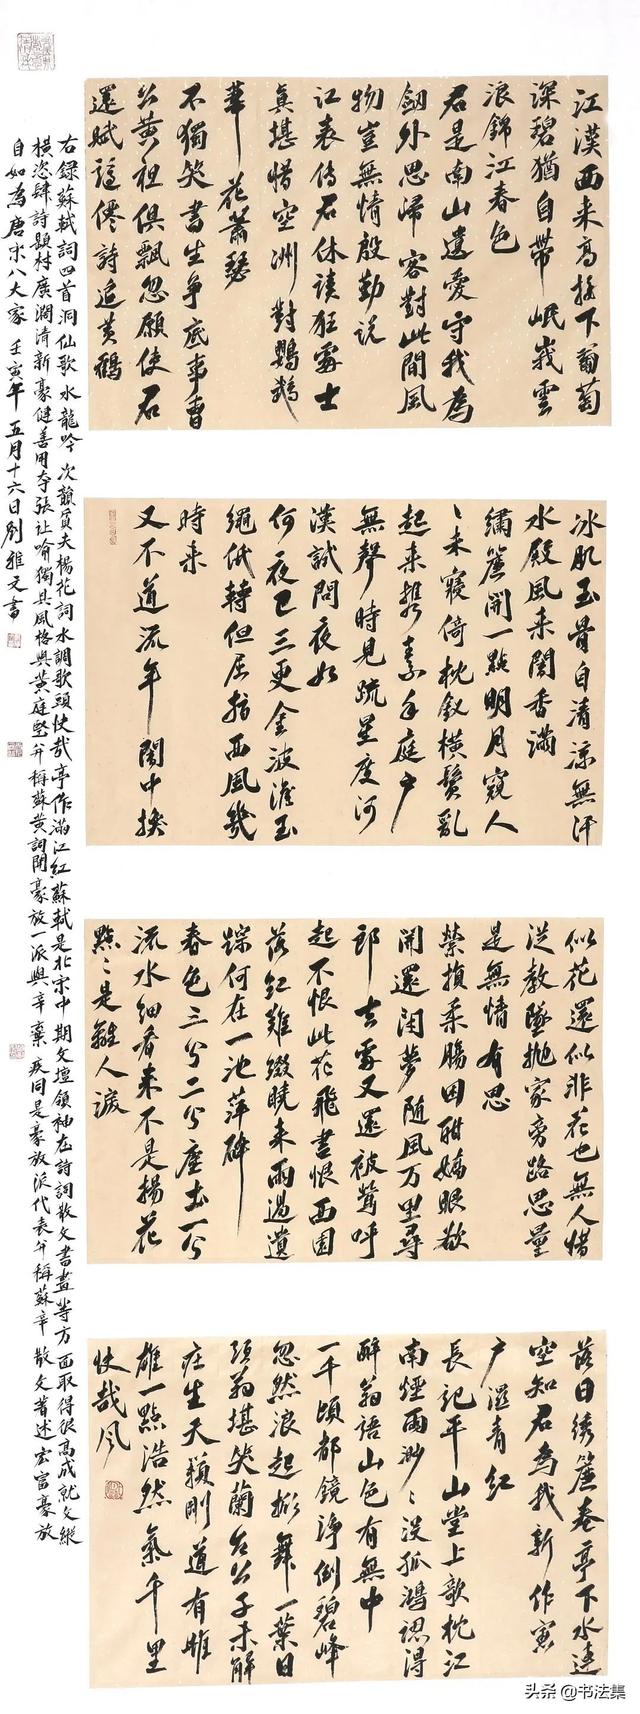 江漢西来高樓下葡萄
深碧猶自帶岷峩雲
浪錦江春色
君是南山遺愛守我為
劒外思歸客對此間風
物豈無情殷勤說
江表傳君休讀狂處士
真堪惜空洲對鸚鵡
華花蕭瑟
不獨笑書生爭底事曹
公黃祖俱飄忽願使君
還賦謫僊詩追黃鶴
冰肌玉骨自清涼無汗
水殿風来闇香滿
繡簾開一點明月窺人
〻未寢倚枕釵橫鬢亂
起来攜素手庭户
無聲時見疏星度河
漢試問夜如
何夜已三更金波澹玉
繩低轉但屈指西風幾
時来
又不道流年闇中換
似花還似非花也無人惜
從教墜抛家旁路思量
是無情有思
縈損柔腸困酣嬌眼欲
開還閉夢随風万里尋
郎去處又還被鶯呼
起不恨此花飛盡恨西園
落红難綴曉来雨過遺
踪何在一池萍碎
春色三分二分塵土一分
流水細看来不是楊花
點〻是離人淚
落日绣簾卷亭下水連
空知君為我新作窓
户溼青红
長記平山堂上欹枕江
南煙雨渺〻没孤鴻認得
醉翁語山色有無中
一千頃都鏡淨倒碧峰
忽然浪起掀舞一葉白
頭翁堪笑蘭台公子未解
莊生天籟剛道有雌
雄一點浩然氣千里
快哉風
右録蘇軾詞四首洞仙歌水龍吟次韻質夫楊花詞水調歌頭快哉亭作滿江红蘇軾是北宋中期文壇領袖在詩詞散文書畫等方面取得很高成就文縱
橫恣肆詩題材廣濶清新豪健善用夸張比喻獨具風格與黄庭堅并稱蘇黄詞開豪放一派與辛棄疾同是豪放派代表并稱蘇辛散文著述宏富豪放
自如為唐宋八大家 壬寅年五月十六日劉雅文書
头条 @书法集